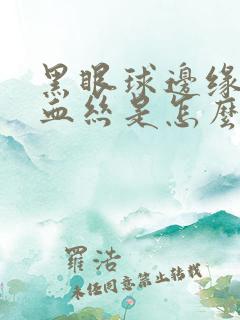 黑眼球邊緣
血絲是怎麼
羅浩
未经同意禁止转载